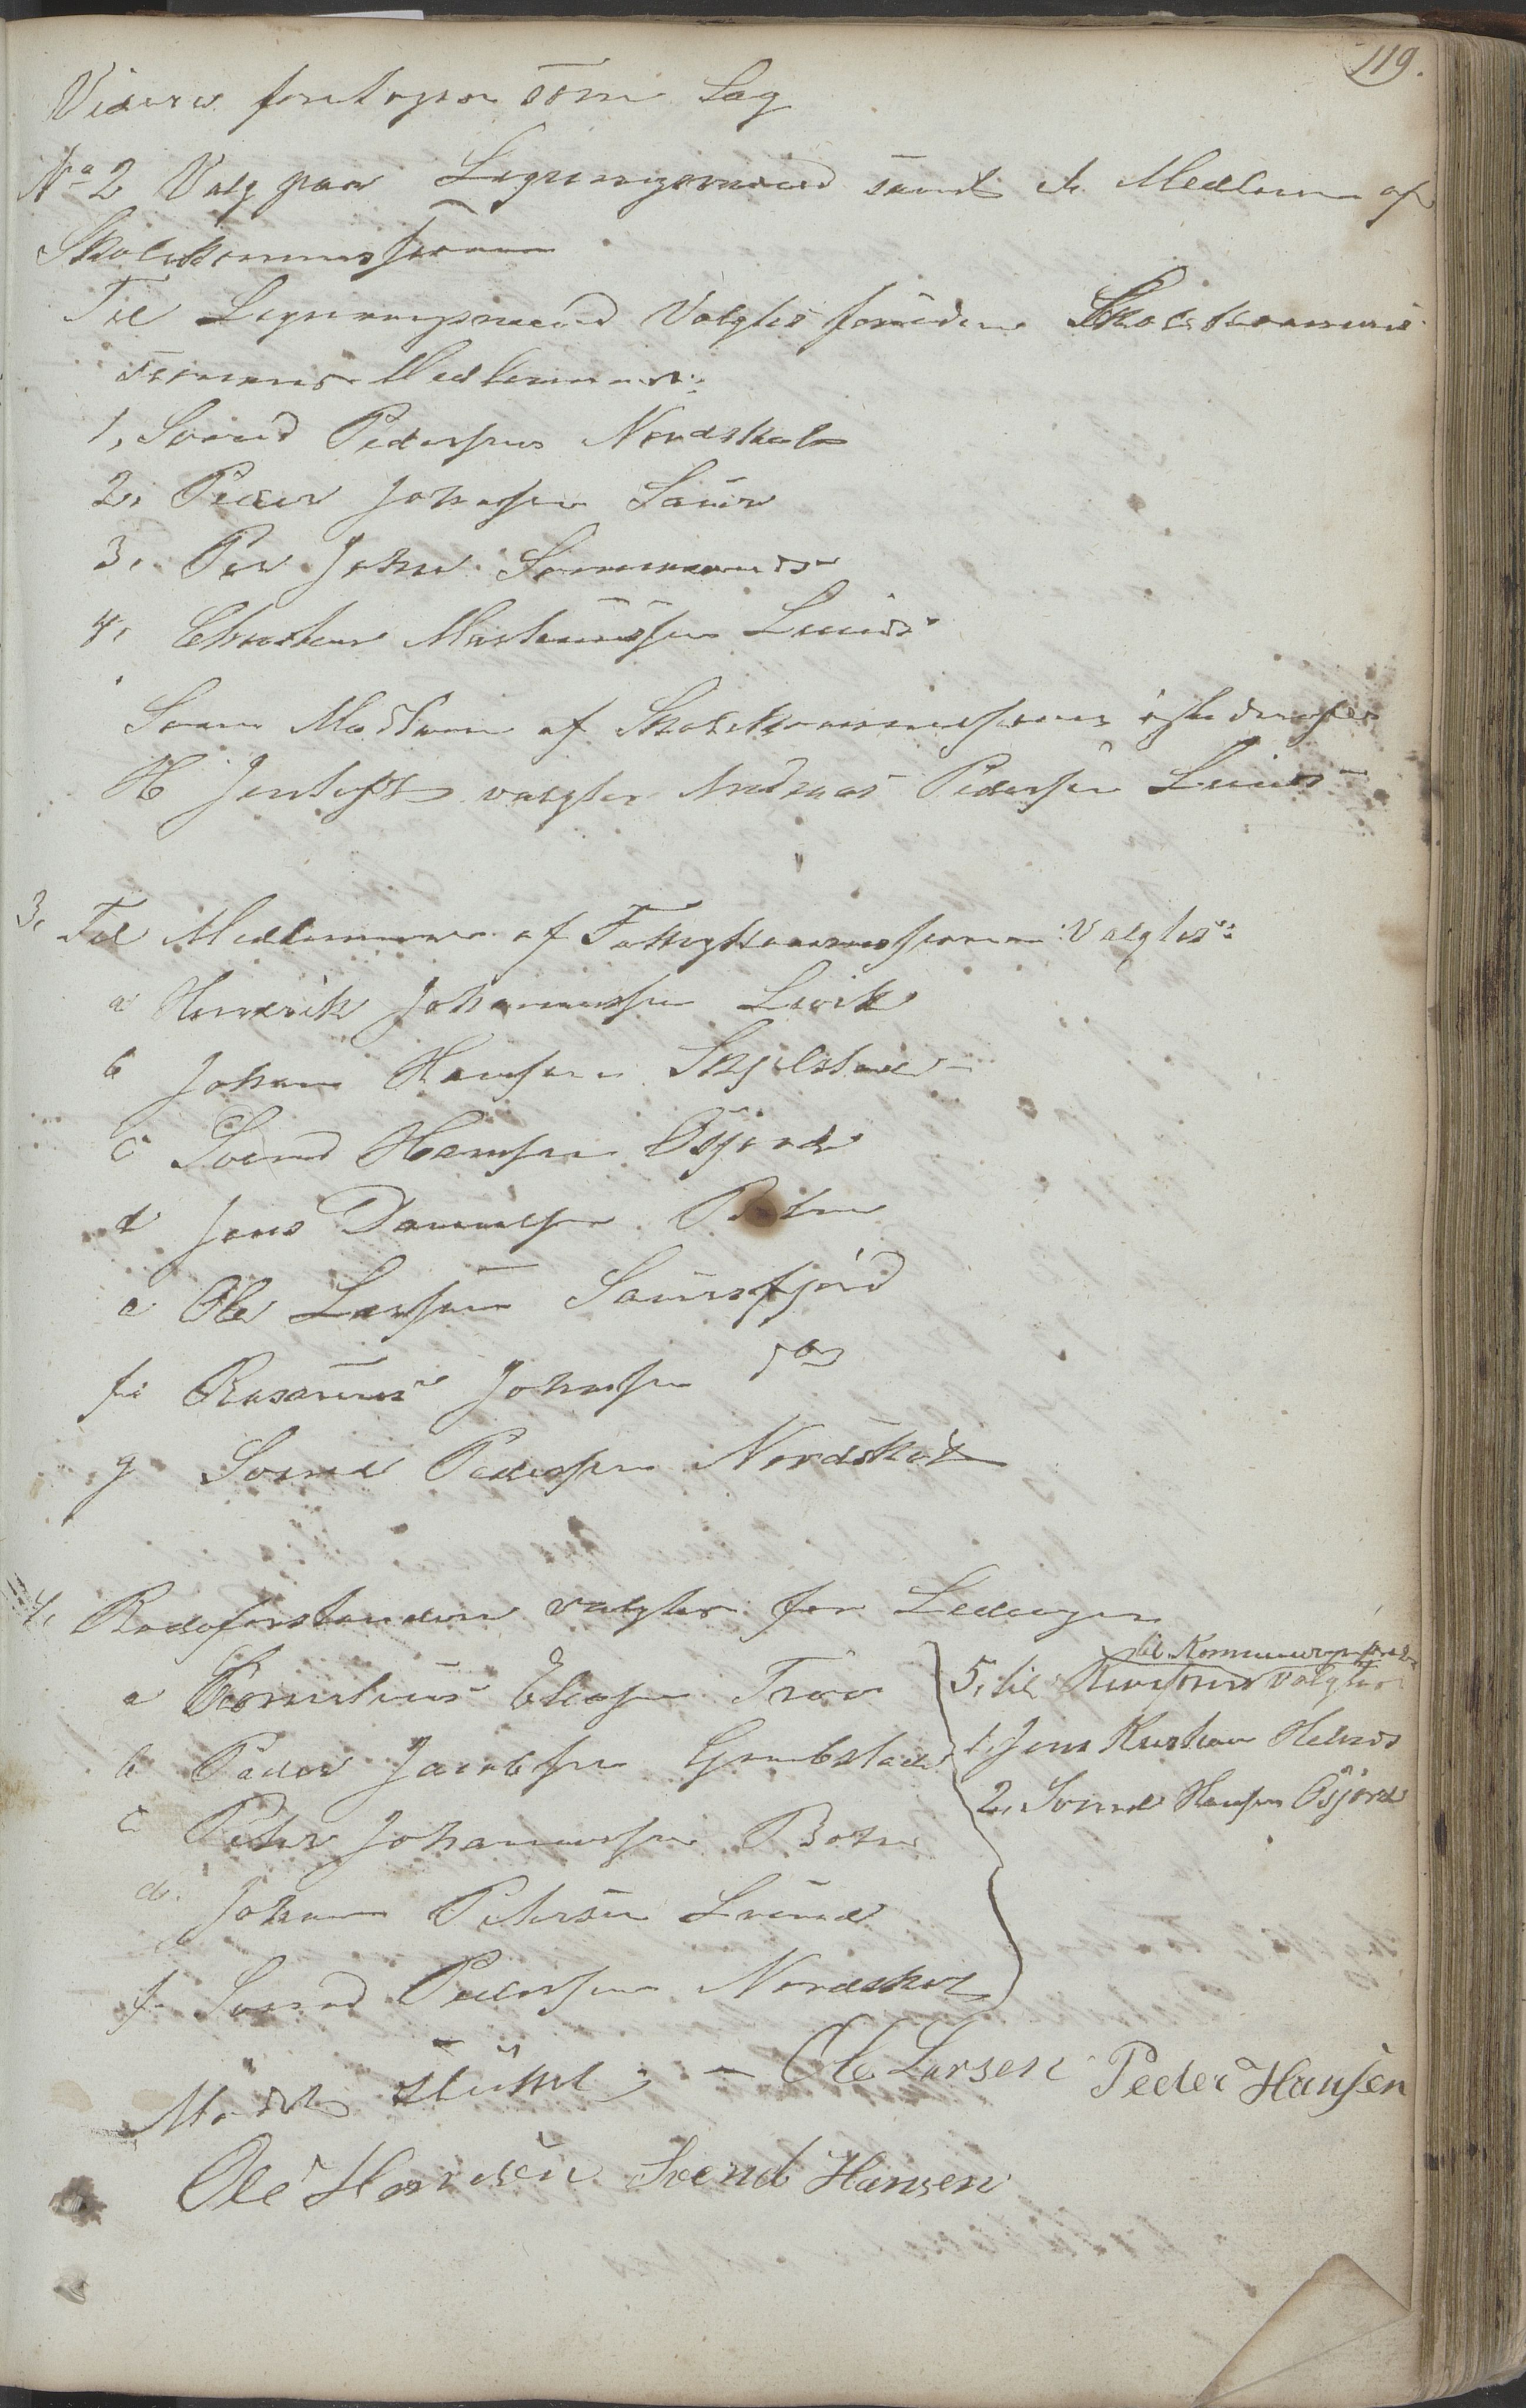 119.
Videre foretoges som Sag
No 2 Valg paa Ligningsmænd samt et Medlem af
Skolekommissionen
Til Ligningsmænd Valgtes foruden Skolekommis
sionens Medlemmer:
1, Svend Pedersen Nordskot
2, Peder Johnsen Saur
3, Per John
4, Martinussen Lund
Som Medlem af Skolekommissionen istedenfor
H Jentoft valgtes Andreas Pedersen Lund
3, Til Medlemmer af Fattigkommissionen Valgtes:
a Henrik Johannessen Levik
b Johan Hansen Skjelstad
c Svend Hansen Åsjord
d Jens Danielsen Botn
e Ole Larsen Saursfjord
f Rasmus Johnsen do
g Svend Pedersen Nordskot
4, Rodeforstandere valgtes for
a Kornelius Eliasen
b Peder Jacobsen
c Peter Johannessen Botn
d. Johan Petersen
f Svend Pedersen Nordskot
5, til Revisorer valgtes
1, Jens Kristian
2, Svend Hansen Åsjord
Mødet sluttet; – Ole Larsen Peder Hansen
Ole Svend Hansen